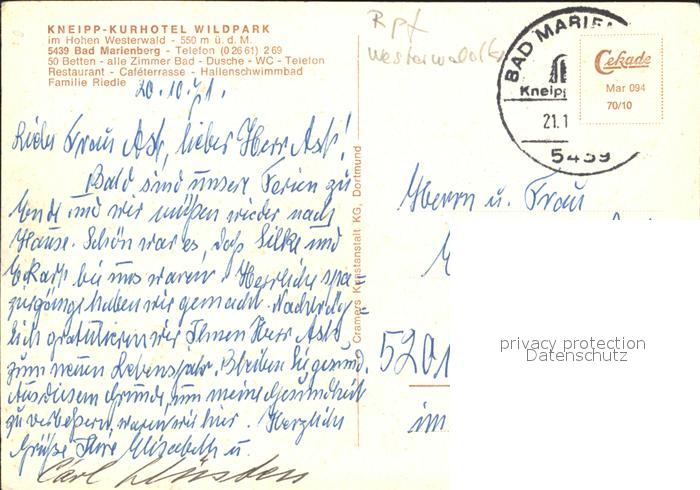 KNEIPP-KURHOTEL WILDPARK
im Hohen Westerwald - 550 m ü. d. M.
5439 Bad Marienberg - Telefon (0 26 61) 2 69
50 Betten - alle Zimmer Bad - Dusche - WC - Telefon
Restaurant - Caféterrasse - Hallenschwimmbad
Familie Riedle
20.10.71.
Liebe Frau Ast, lieber Herr Ast!
Bald sind unsere Ferien zu
Ende und wir müßen wieder nach
Hause. Schön war es, daß Silke und
Eckart bei uns waren. Herrliche Spa=
ziergänge haben wir gemacht. Nachträg=
lich gratulieren wir Ihnen Herr Ast
zum neuen Lebensjahr. Bleiben Sie gesund.
Aus diesem Grunde, um meine Gesundheit
zu verbessern, waren wir hier. Herzliche
Grüße Ihre Elisabeth u.
Carl
Cramers Kunstanstalt KG, Dortmund
Rpf
Westerwald
BAD MARIEN
Kneipp
21.1
5439
Cekade
Mar 094
70/10
Herrn u. Frau
5201
im
privacy protection
Datenschutz